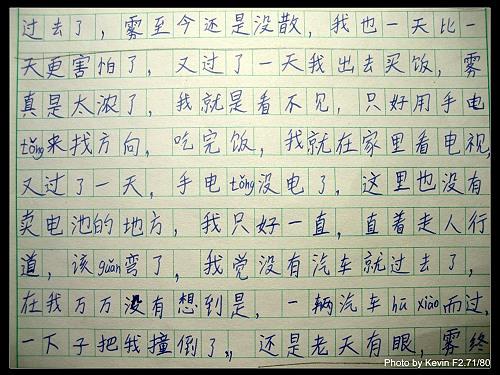 过去了，雾至今还是没散，我也一天比一
天更害怕了，又过了一天我出去买饭，雾
真是太浓了，我就是看不见，只好用手电
tǒng来找方向，吃完饭，我就在家里看电视，
又过了一天，手电tǒng没电了，这里也没有
卖电池的地方，我只好一直，直着走人行
道，该guǎn弯了，我觉没有汽车就过去了，
在我万万没有想到是，一辆汽车hū xiào而过，
一下子把我撞倒了，，还是老天有眼，雾终
Photo by Kevin F2.71/80